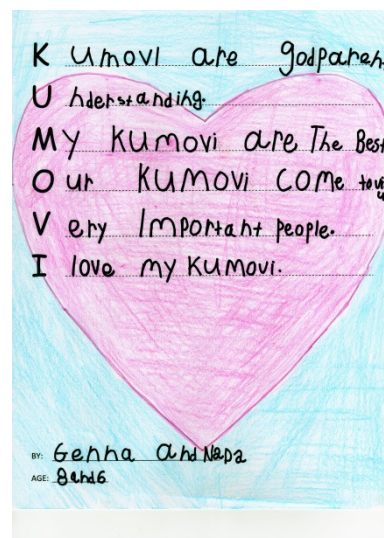 KUmovi are godparen
Understanding.
My KUmovi are The Best
Our KUMOVI COMe to
Very Important people.
I love my KUmovi.
BY: Genna and NaDa
AGE: 8and6